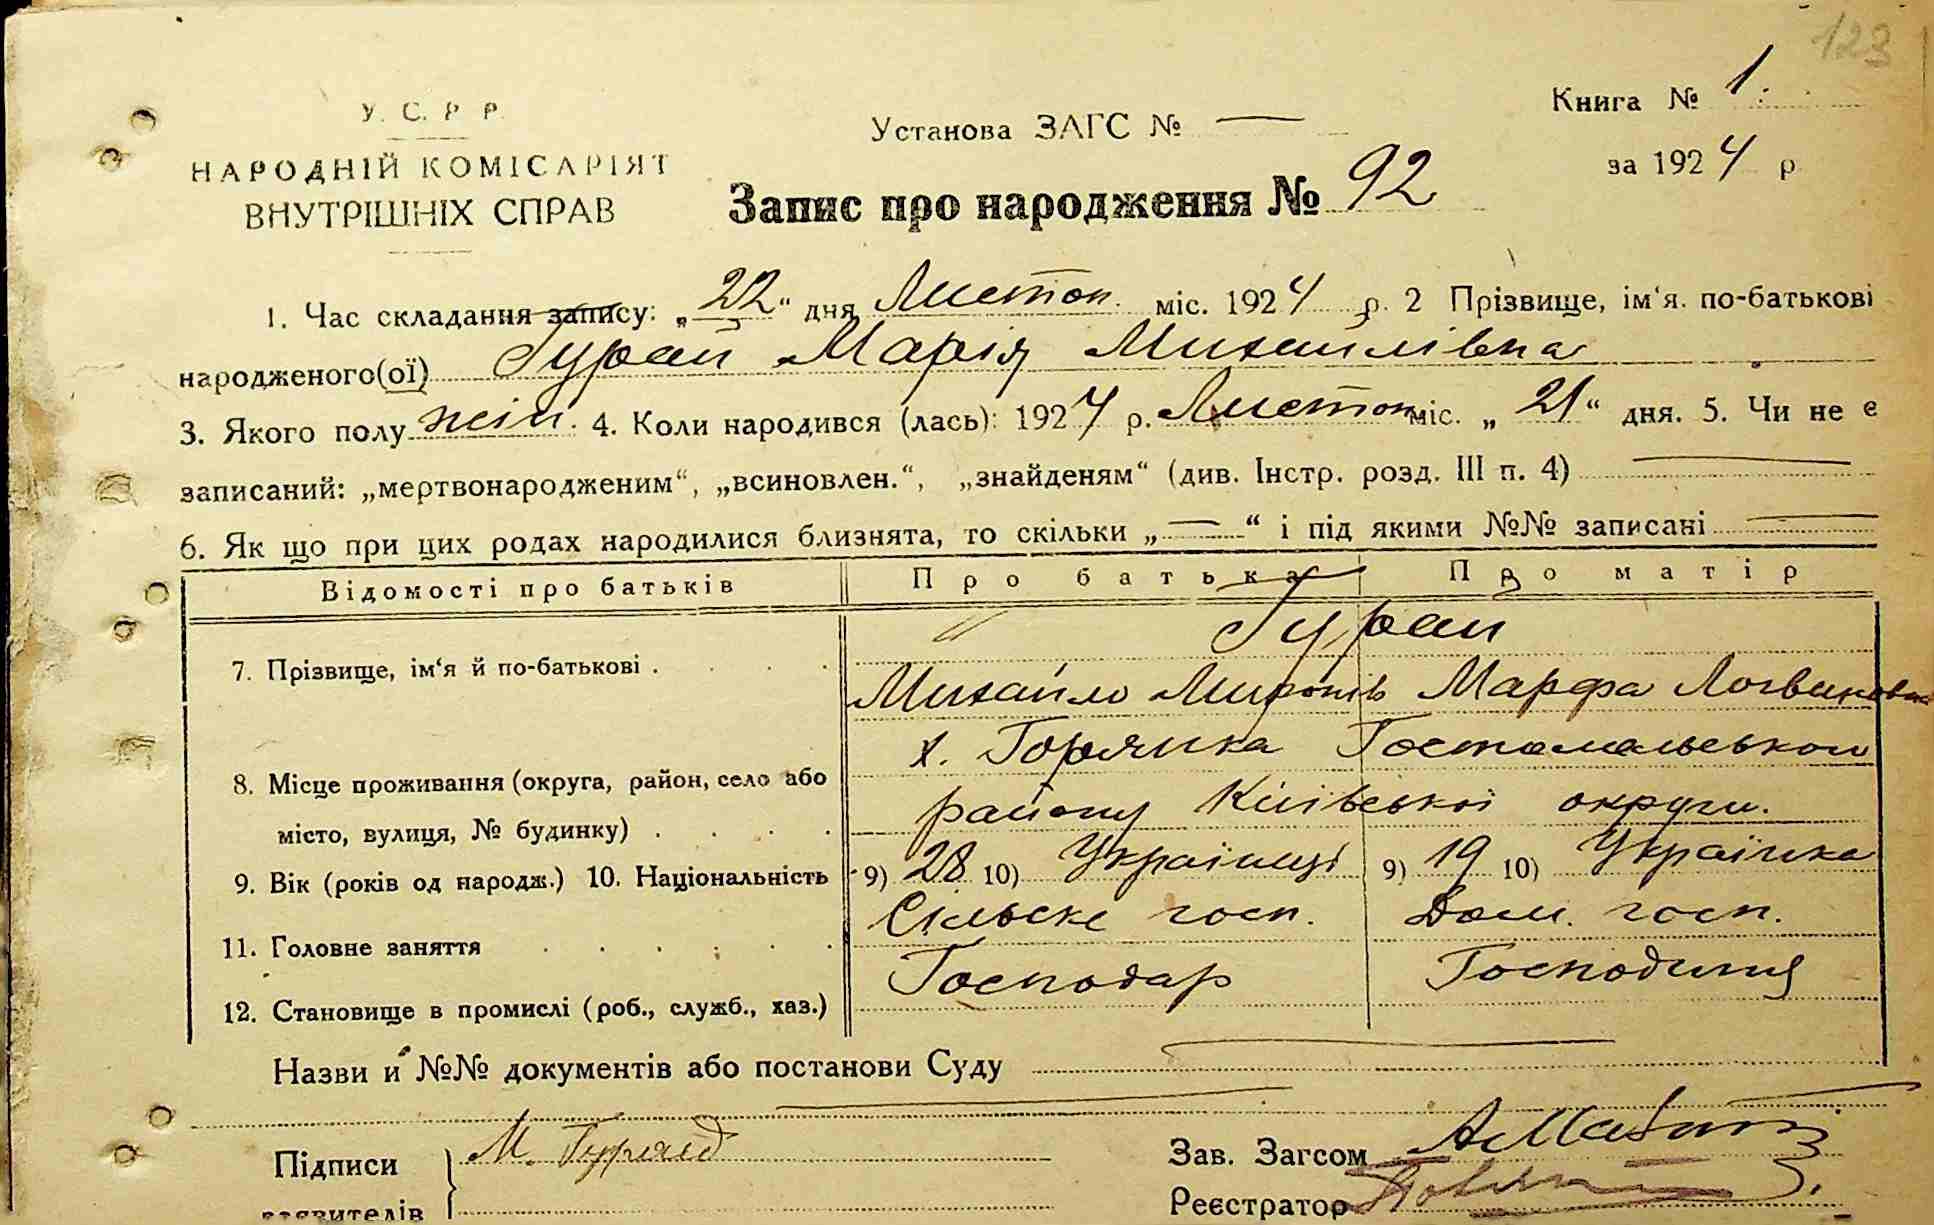 123
У. С. Р. Р.
НАРОДНІЙ КОМІСАРІЯТ
ВНУТРІШНІХ СПРАВ
Установа ЗАГС № —
Книга № 1.
за 1924 р.
Запис про народження № 92
1. Час складання запису: „22“ дня Листоп. міс. 1924 р. 2 Прізвище, ім‘я. по-батькові
народженого(ої) Гурай Марія Михайлівна
3. Якого полу жін. 4. Коли народився (лась): 1924 р. Листоп міс. „21“ дня. 5. Чи не є
записаний: „мертвонародженим“, „всиновлен.“, „знайденям“ (див. Інстр. розд. III п. 4) —
6. Як що при цих родах народилися близнята, то скільки „—“ і під якими №№ записані —
Відомості про батьків Про батька Про матір
Гурай
7. Прізвище, ім‘я й по-батькові . Михайло Миронів Марфа Логвинова
х. Горянка Гостомельського
8. Місце проживання (округа, район, село або
місто, вулиця, № будинку) району Київської округи.
9. Вік (років од народж.) 10. Національність 9) 28 10) Українці 9) 19 10) Українка
11. Головне заняття Сільске госп. Дом. госп.
12. Становище в промислі (роб., служб., хаз.) Господар Господиня
Назви й №№ документів або постанови Суду —
Підписи М. Зав. Загсом
заявителів Реєстратор